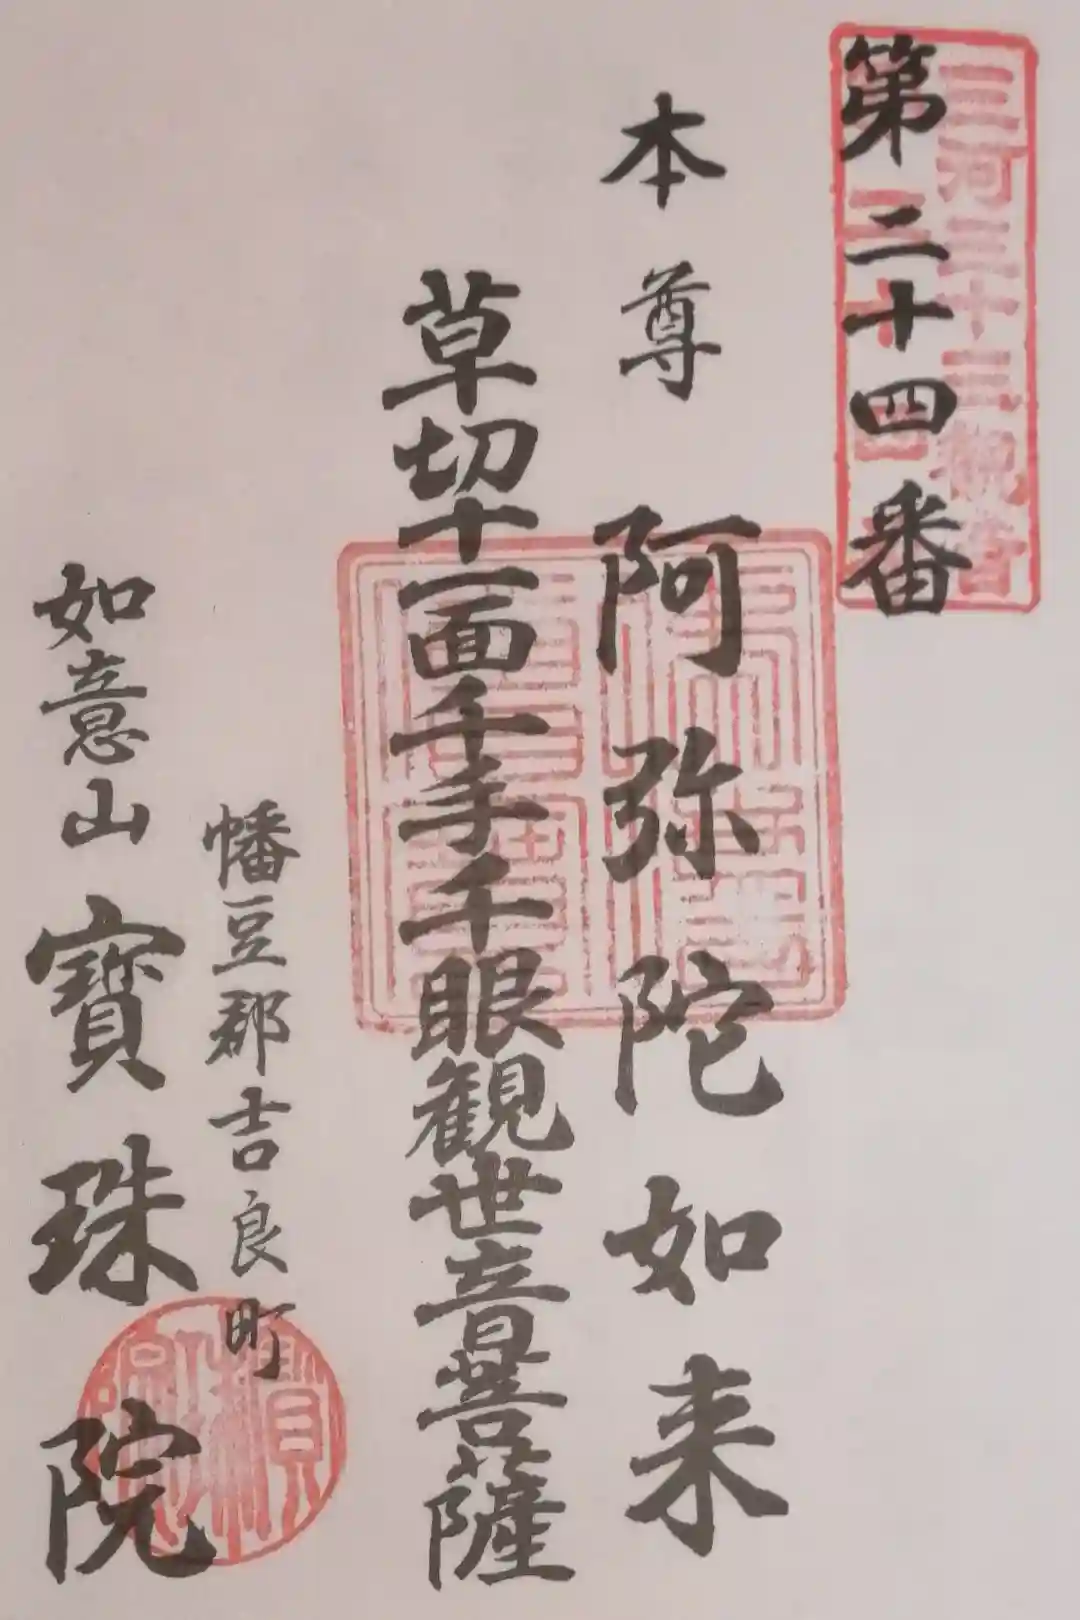 三河三十三観音
第二十四番
本尊 阿弥陀如来
草切十一面千手千眼観世音菩薩
幡豆郡吉良町
如意山 寶珠院
寶珠院